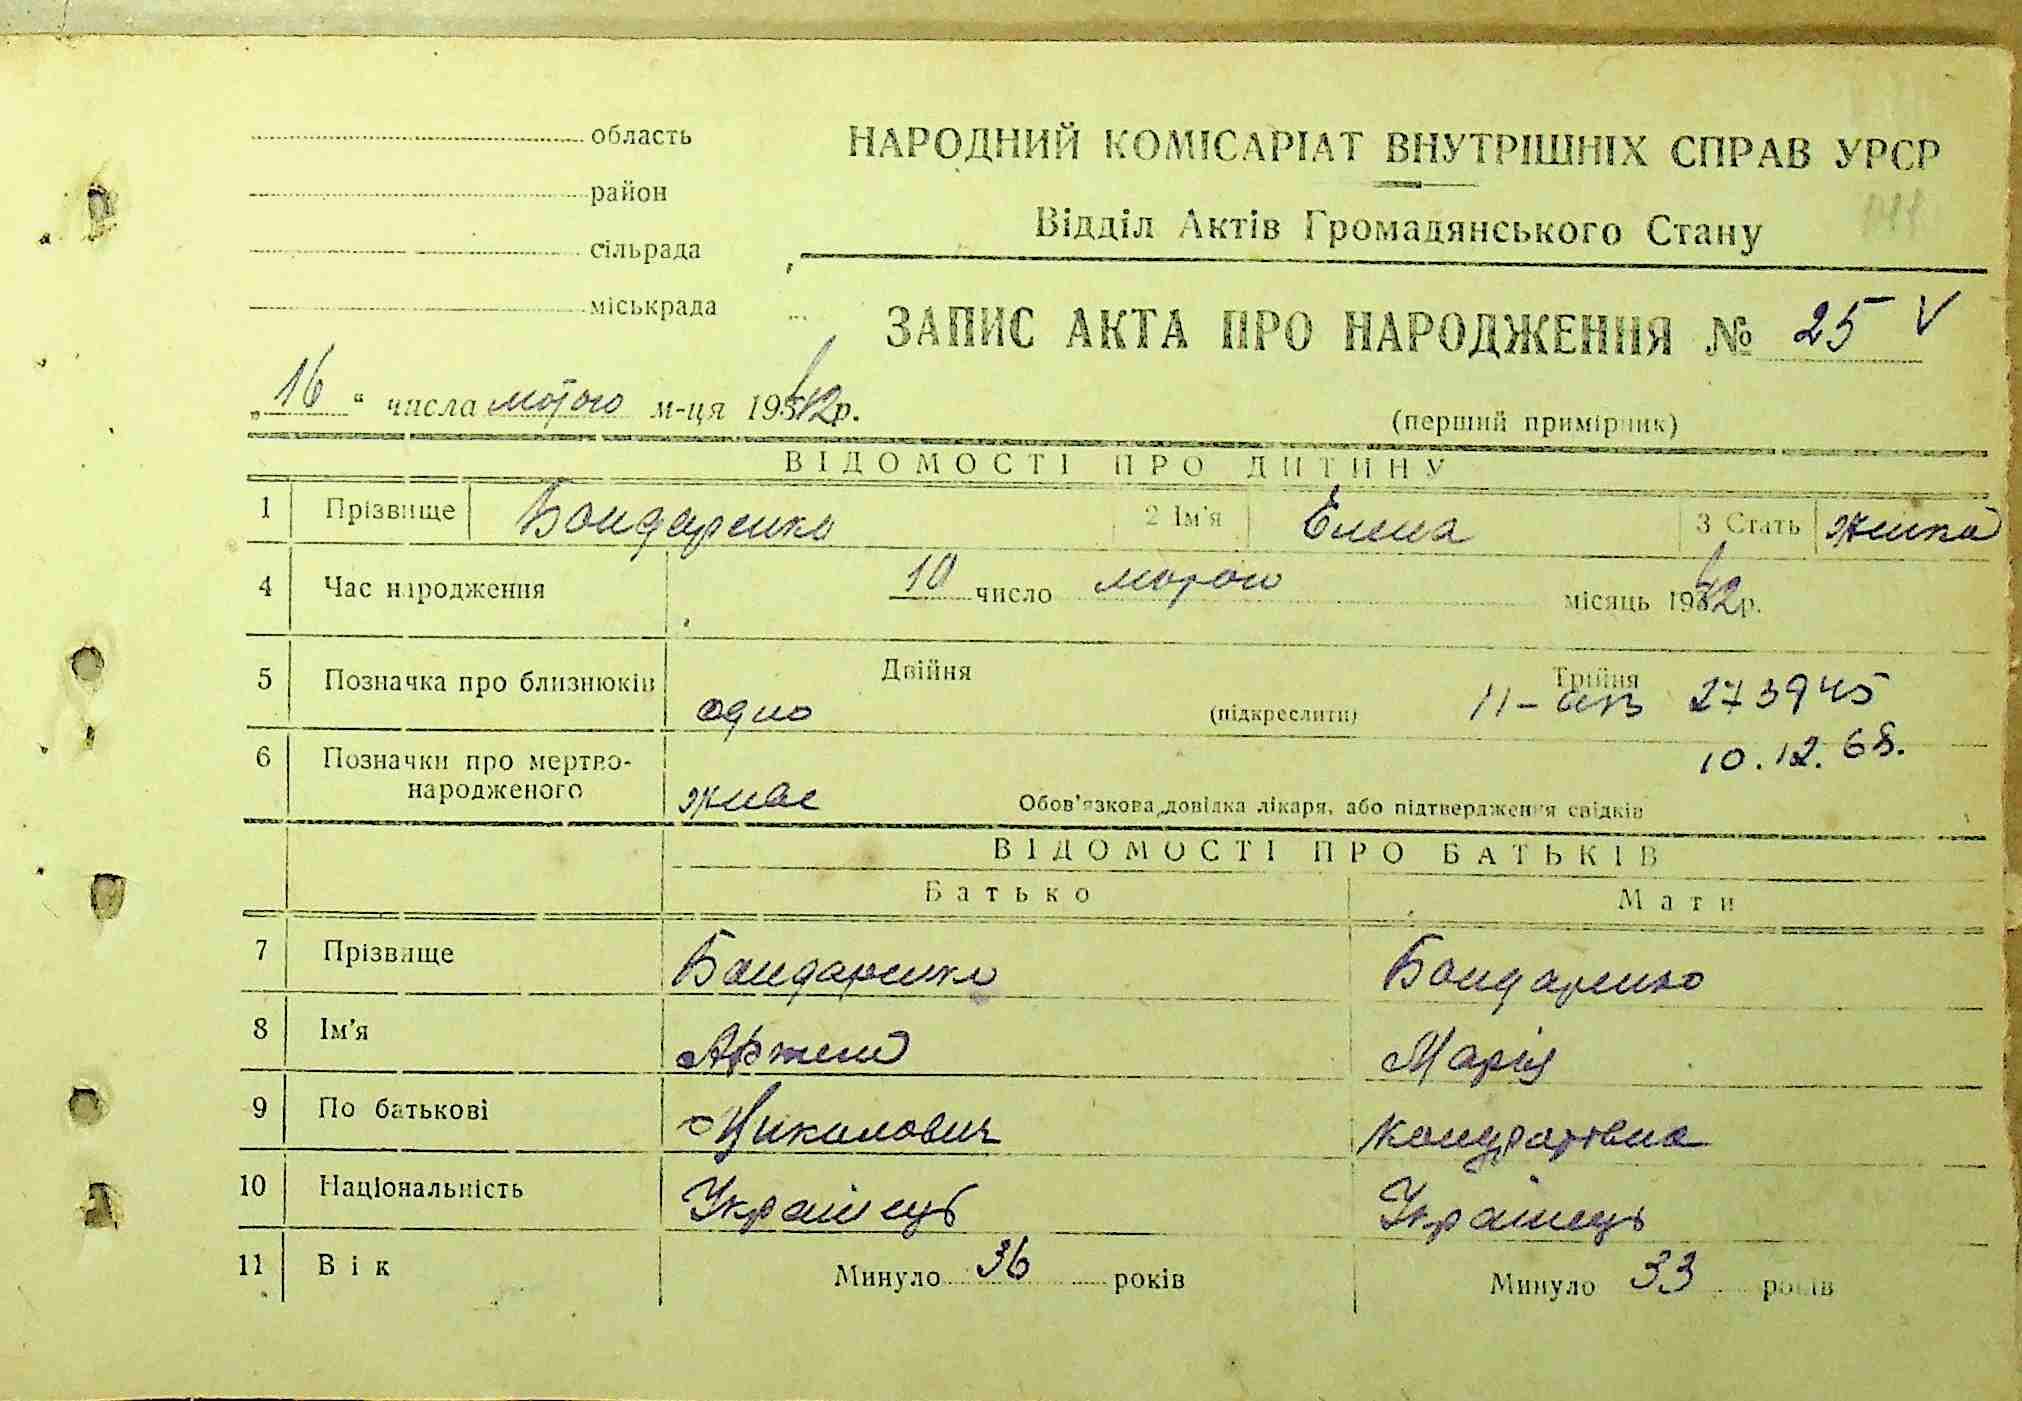 область
НАРОДНИЙ КОМІСАРІАТ ВНУТРІШНІХ СПРАВ УРСР
район
Відділ Актів Громадянського Стану
сільрада
міськрада
ЗАПИС АКТА ПРО НАРОДЖЕННЯ № 25 V
„16“ числа лютого м-ця 1942р.
(перший примірник)
ВІДОМОСТІ ПРО ДИТИНУ
1 Прізвище Бондаренко 2 Ім'я Елена 3 Стать жінка
4 Час народження 10 число лютого місяць 1942р.
5 Позначка про близнюків одно Двійня (підкреслити) Трійня
II- 273945
10.12.68.
6 Позначки про мертво-
народженого живе Обов'язкова довідка лікаря, або підтвердження свідків
ВІДОМОСТІ ПРО БАТЬКІВ
Батько Мати
7 Прізвище Бондаренко Бондаренко
8 Ім'я Артем Марія
9 По батькові Николович Кондратівна
10 Національність Українець Українець
11 Вік Минуло 36 років Минуло 33 років